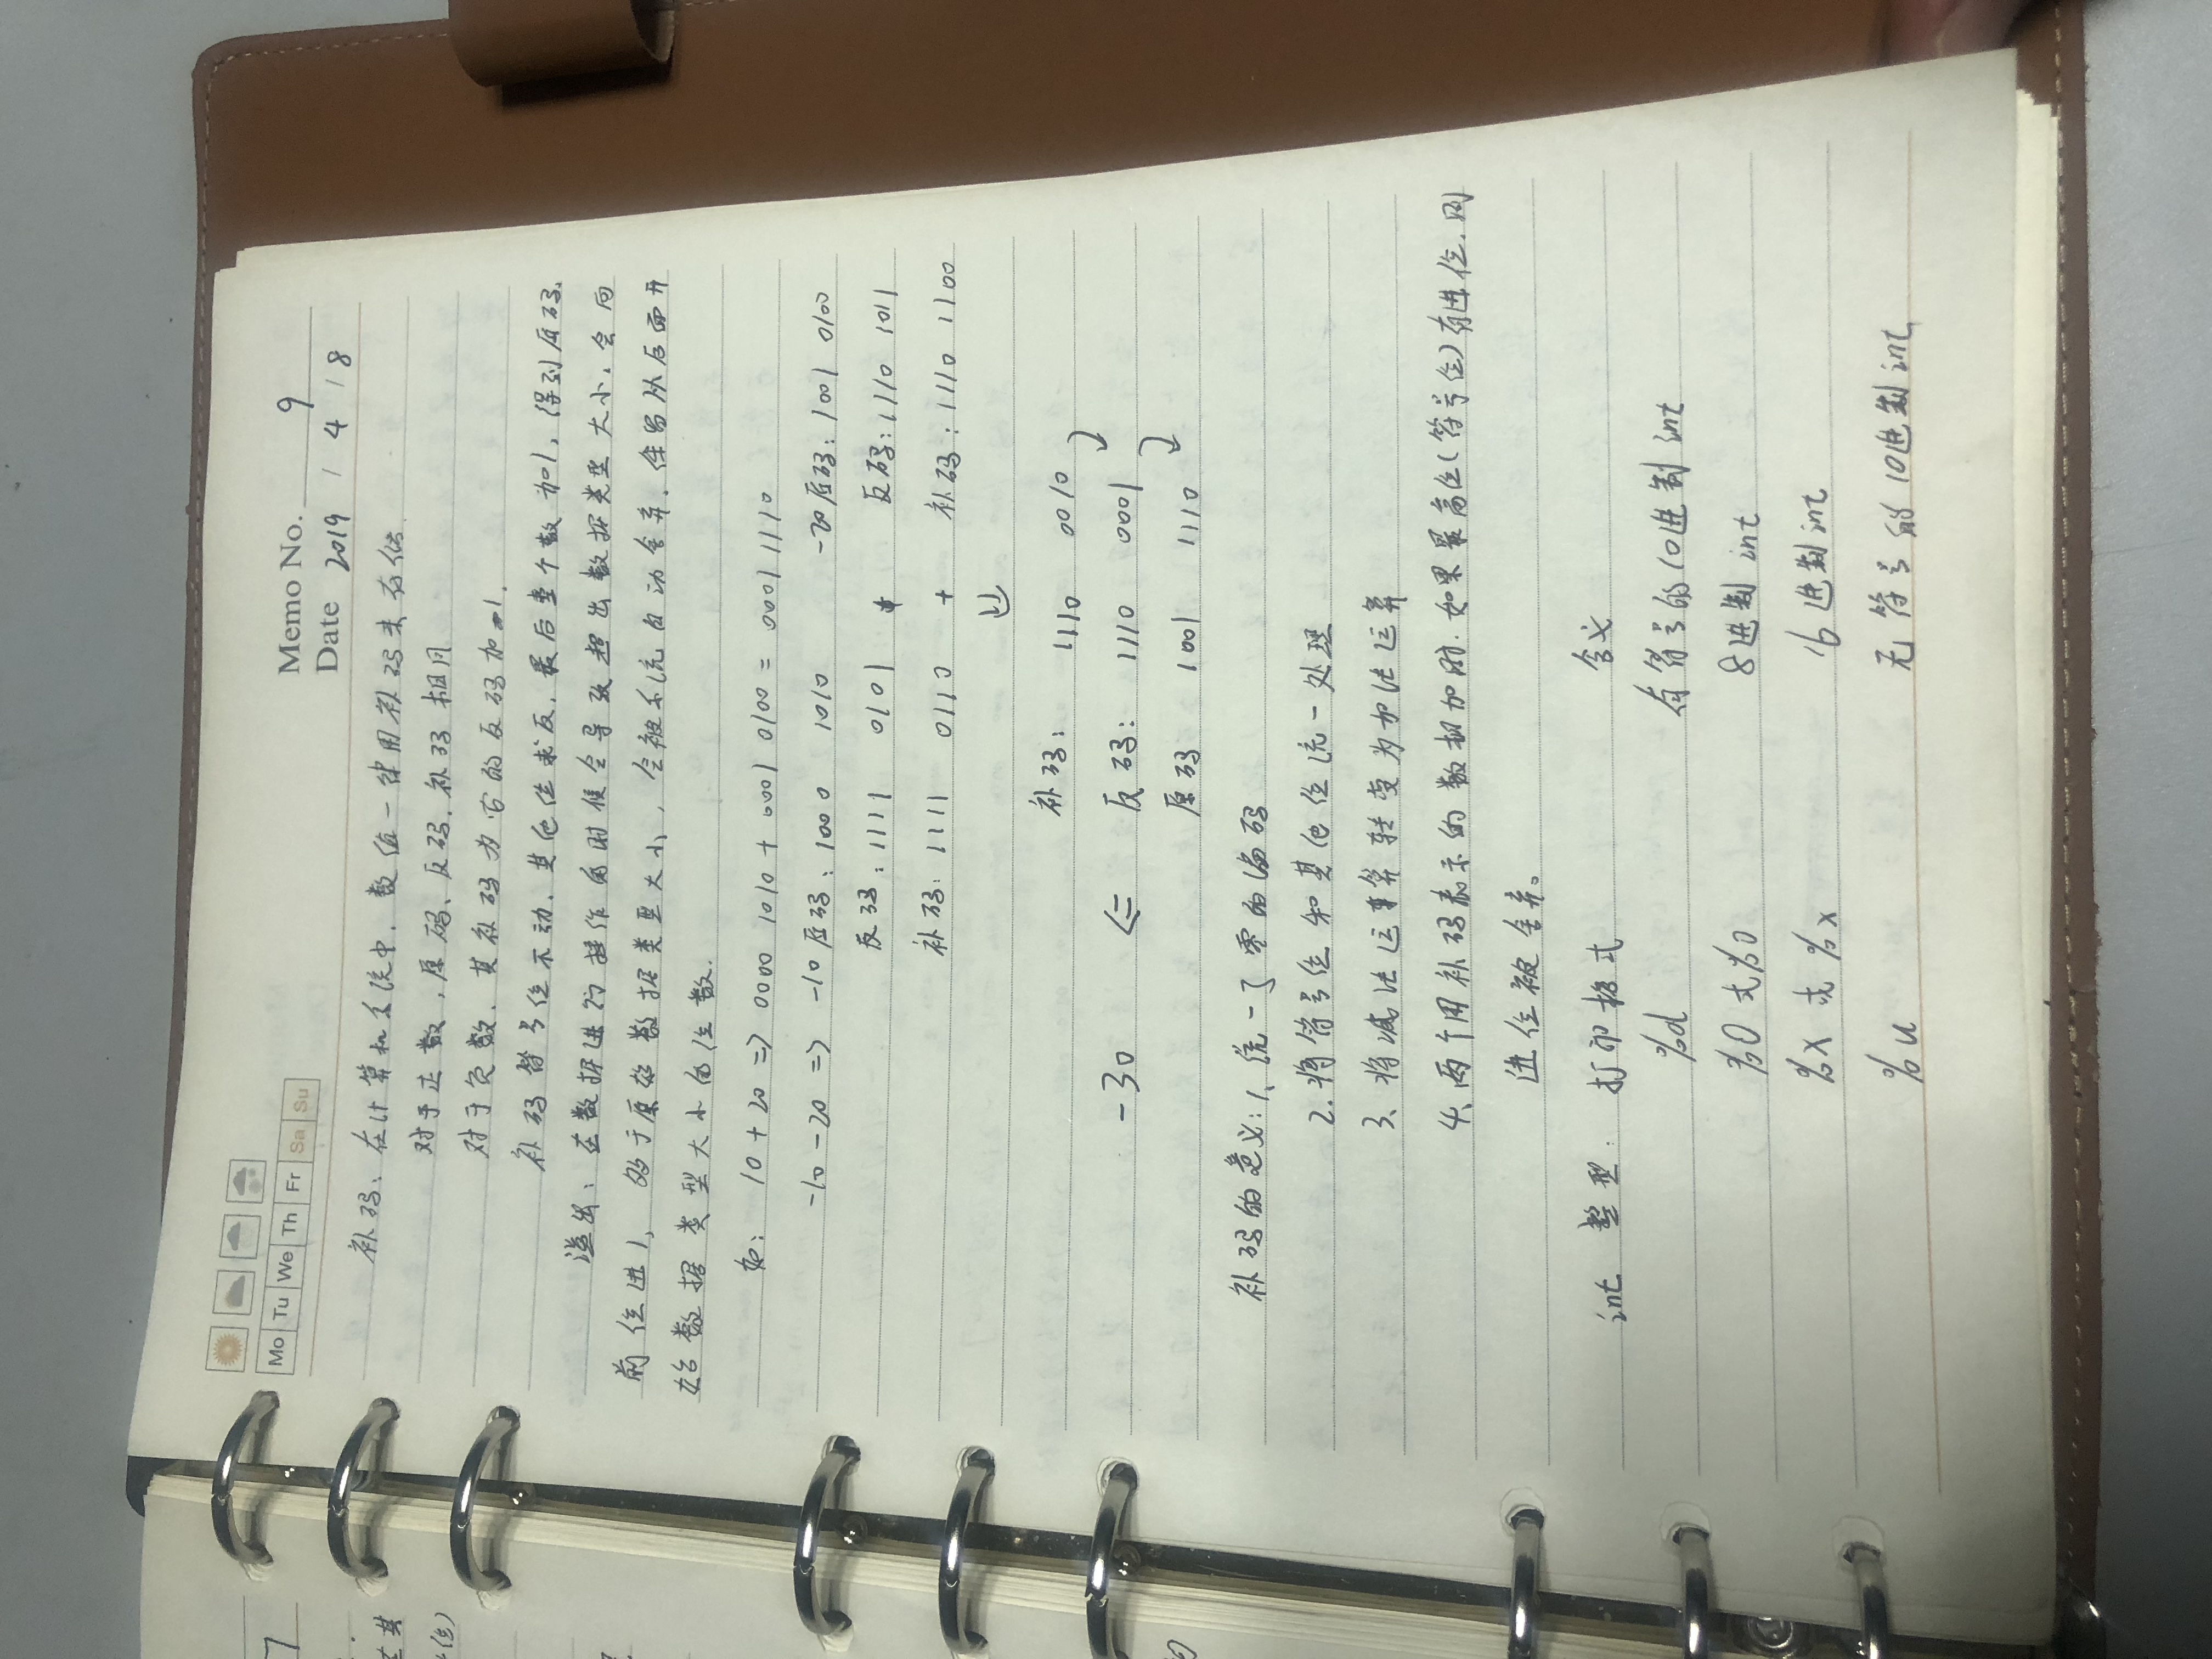 Memo No. 9
Mo Tu We Th Fr Sa Su
Date 2019 / 4 / 8
补码、在计算机系统中，数值一律用补码来存储.
对于正数，原码、反码、补码相同
对于负数，其补码为它的反码加1.
补码符号位不动，其他位求反，最后整个数加1，得到原码.
溢出：在数据进行操作的时候会导致超出数据类型大小，会向
前位进1，多于原始数据类型大小，会被系统自动舍弃，保留从后面开
始数据类型大小的位数.
如： 10 + 20 => 0000 1010 + 0001 0100 = 0001 1110
-10 -20 => -10原码：1000 1010 -20原码：1001 0100
反码：1111 0101 + 反码：1110 1011
补码：1111 0110 + 补码：1110 1100
补码： 1110 0010
-30 <= 反码： 1110 0001
原码 1001 1110
补码的意义：1、统一了零的编码
2. 将符号位和其他位统一处理
3、将减法运算转变为加法运算
4、两个用补码表示的数相加时，如果最高位(符号位)有进位，则
进位被舍弃。
int 整型： 打印格式 含义
%d 有符号的10进制int
%O 或%o 8进制int
%X 或 %x 16进制int
%u 无符号的10进制int